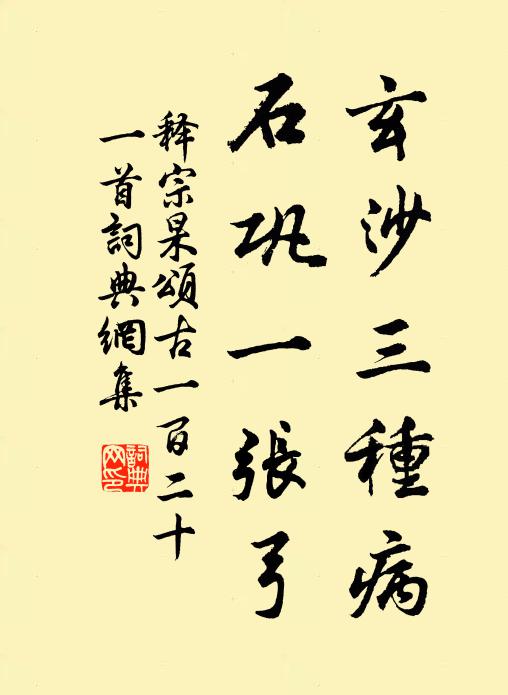 玄沙三種病
石巩一張弓
释宗杲頌古一百二十
一首詞典網集
詞典网印